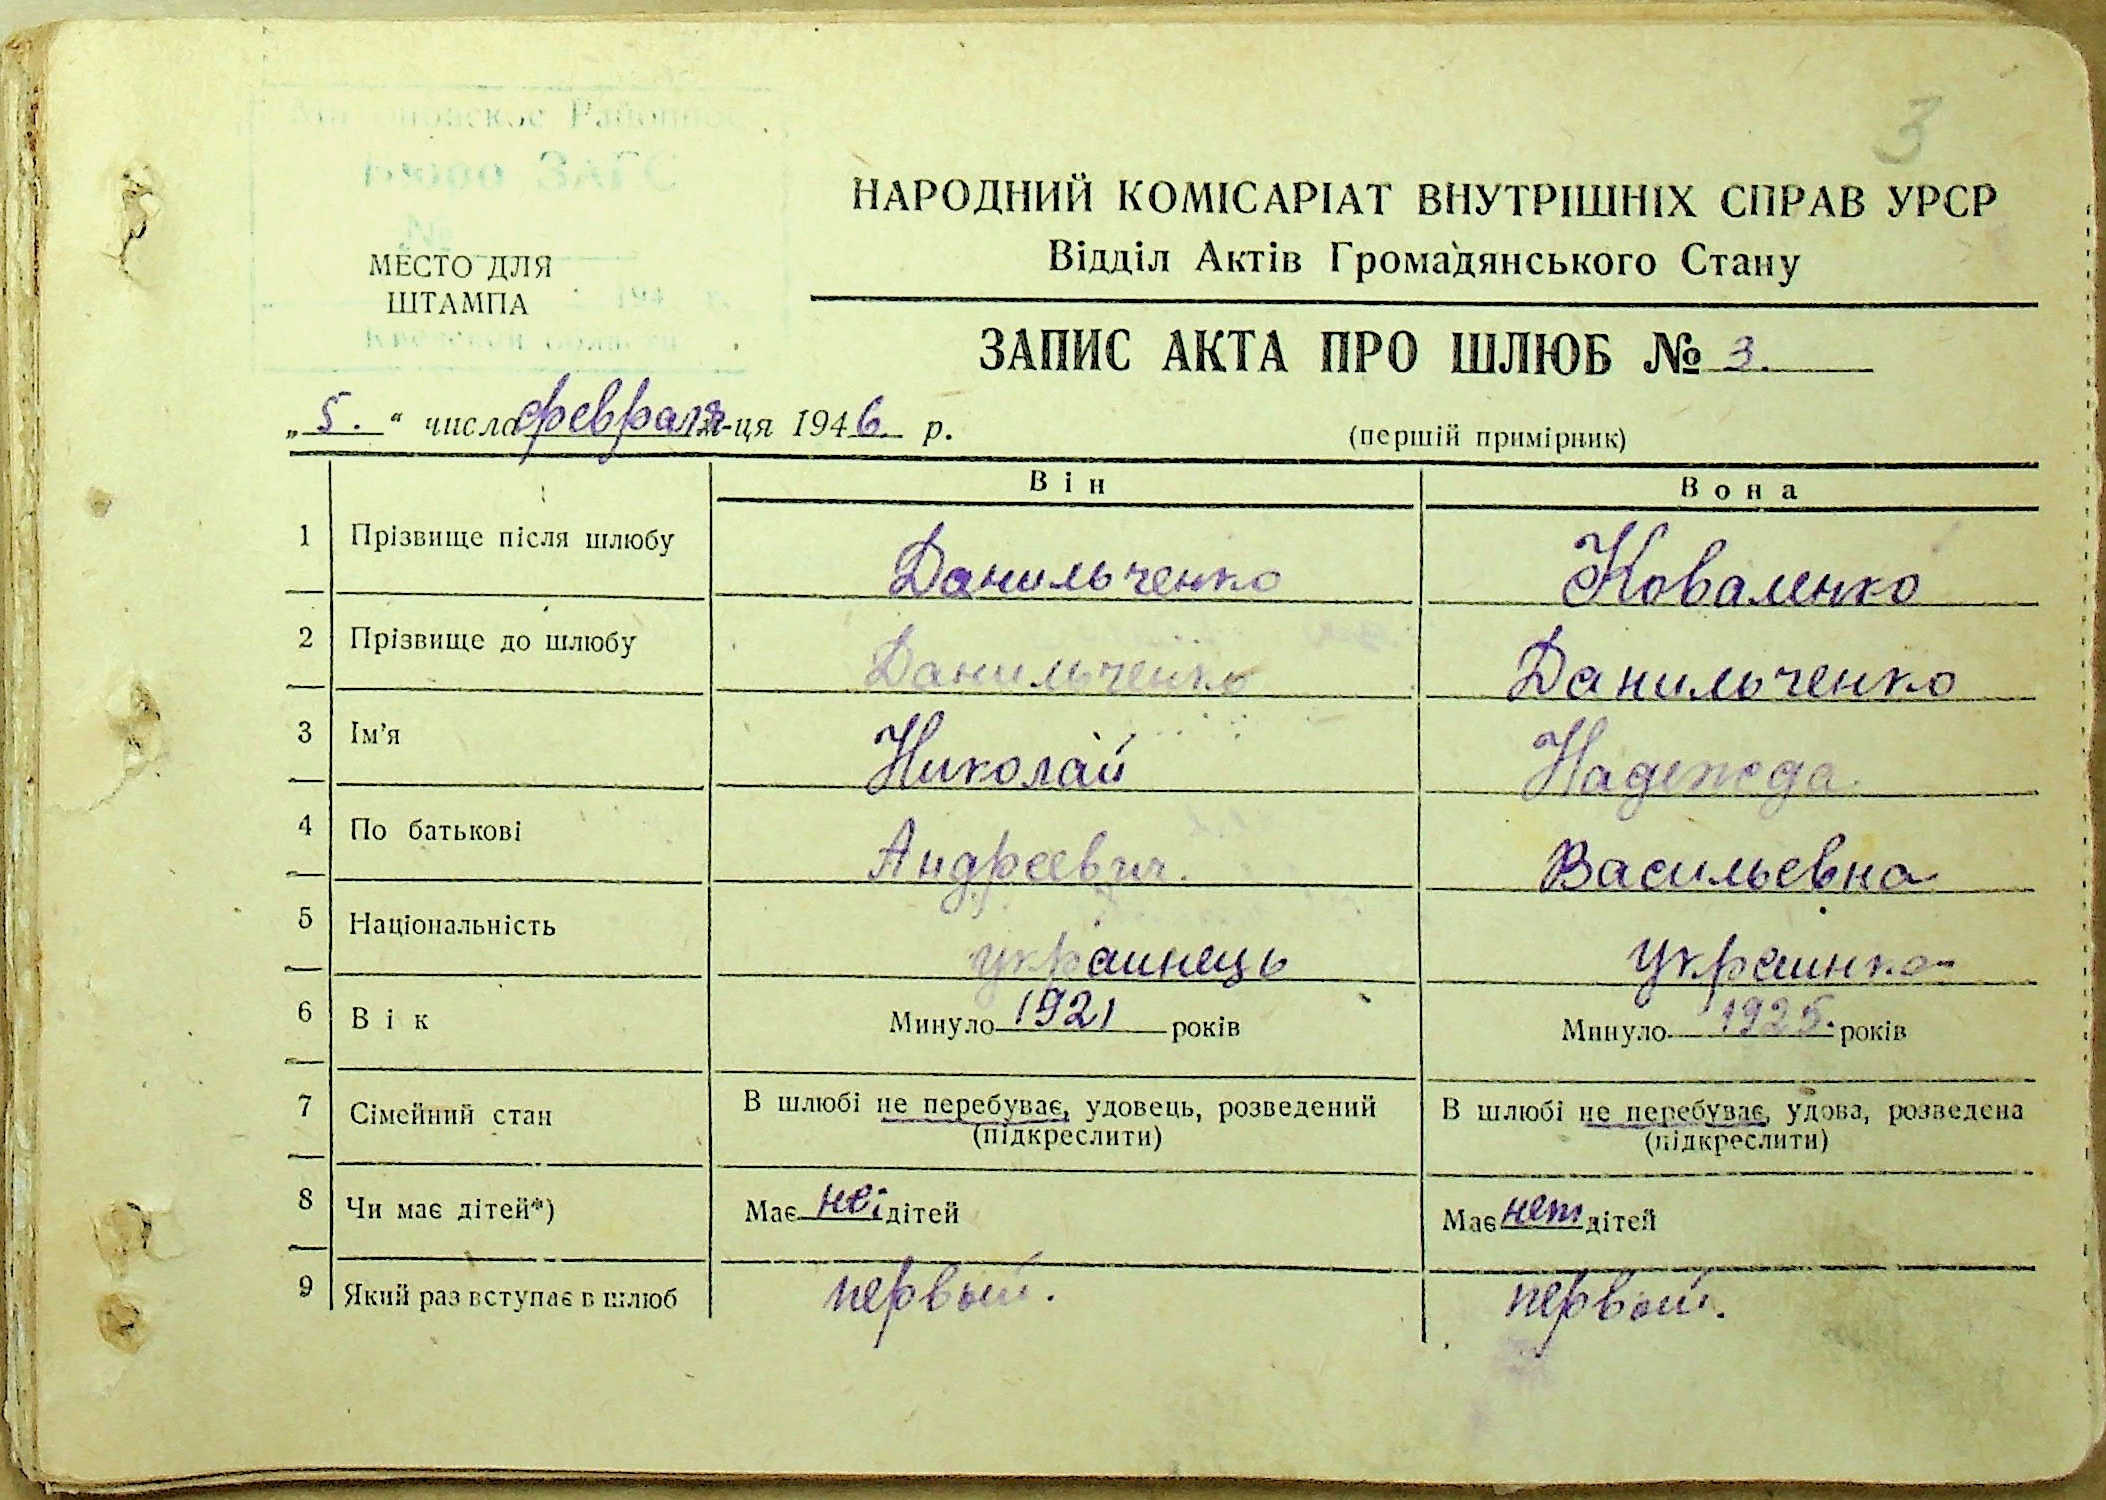 3
Районное
Бюро ЗАГС
№
МЕСТО ДЛЯ
ШТАМПА
194 г.
Киевской области
НАРОДНИЙ КОМІСАРІАТ ВНУТРІШНІХ СПРАВ УРСР
Відділ Актів Громадянського Стану
ЗАПИС АКТА ПРО ШЛЮБ № 3.
„5.“ числа февраля м-ця 1946 р.
(першій примірник)
Він Вона
1 Прізвище після шлюбу Данильченко Коваленко
2 Прізвище до шлюбу Данильченко Данильченко
3 Ім'я Николай Надежда.
4 По батькові Андреевич. Васильевна
5 Національність украинець украинка
6 Вік Минуло 1921 років Минуло 1925. років
7 Сімейний стан В шлюбі не перебуває, удовець, розведений В шлюбі не перебуває, удова, розведена
(підкреслити) (підкреслити)
8 Чи має дітей*) Має дітей Має нет дітей
9 Який раз вступає в шлюб первый. первый.